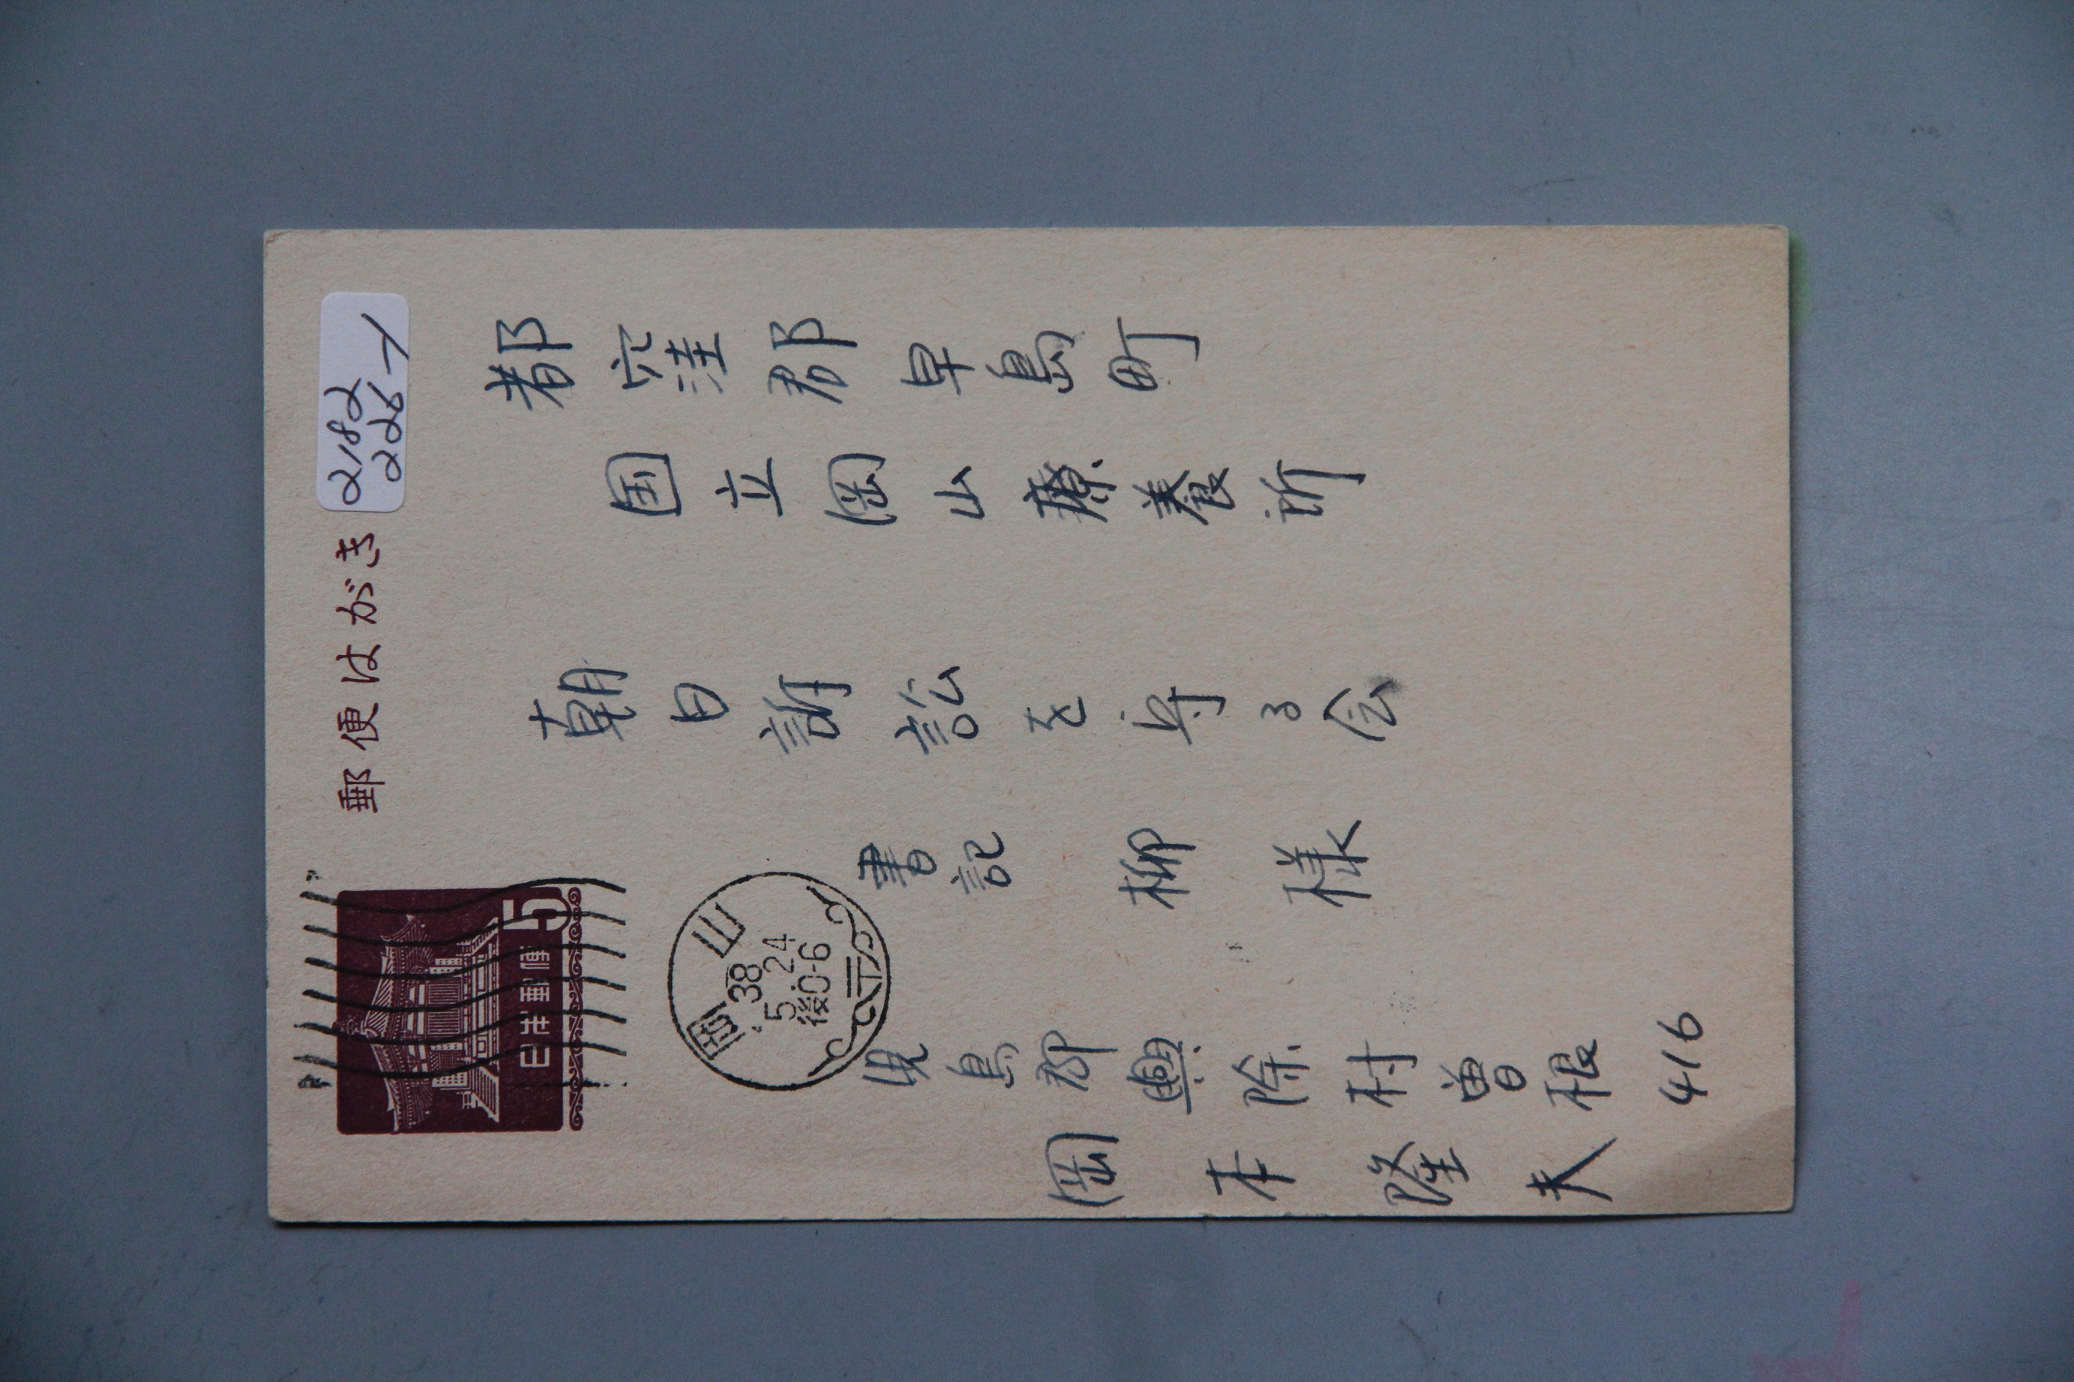 郵便はがき
2182
226-1
都窪郡早島町
国立岡山療養所
朝日訴訟を守る会
書記 柳 様
日本郵便
5
岡山
38
5.24
後0-6
児島郡興除村曽根 416
岡本隆夫